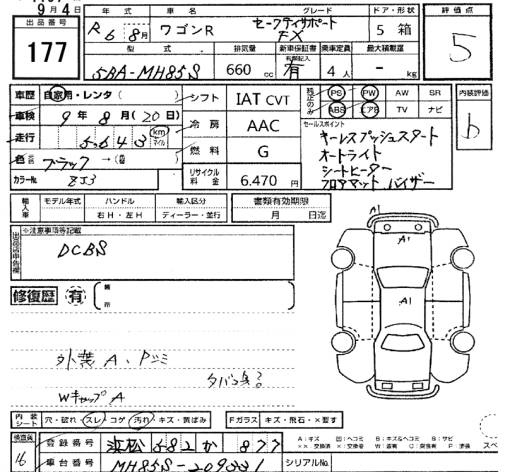 9月4日
出品番号
177
年式 車名 グレード ドア・形状 評価点
R6 8月 ワゴンR セーフティサポート FX 5 箱 5
型式 排気量 新車保証書 乗車定員 最大積載量
5BA-MH85S 660cc 有 4人 - kg
車歴 自家用・レンタ( )
シフト IAT CVT
純正のみ PS PW AW SR
ABS エアB TV ナビ
内装評価
b
車検 9年8月(20日)
冷房 AAC
セールスポイント
キーレスプッシュスタート
オートライト
シートヒーター
フロアマット バイザー
走行 5643 km マイル
燃料 G
色 ブラック→( )
カラーNo. ZJ3
リサイクル料金 6.470円
輸入車 モデル年式 ハンドル 輸入区分 書類有効期限
右H・左H ディーラー・並行 月 日迄
※注意事項等記載
出品店申告欄
DCBS
修復歴 有
A1
A1
外装A、Pシミ
タバコ臭?
WキャップA
内装シート 穴・破れ スレ・コゲ 汚れ キズ・黄ばみ
Fガラス キズ・飛石・×要す
検査員
16
登録番号 浜松 582 か 877
車台番号 MH85S-209331
シリアルNo.
A:キズ